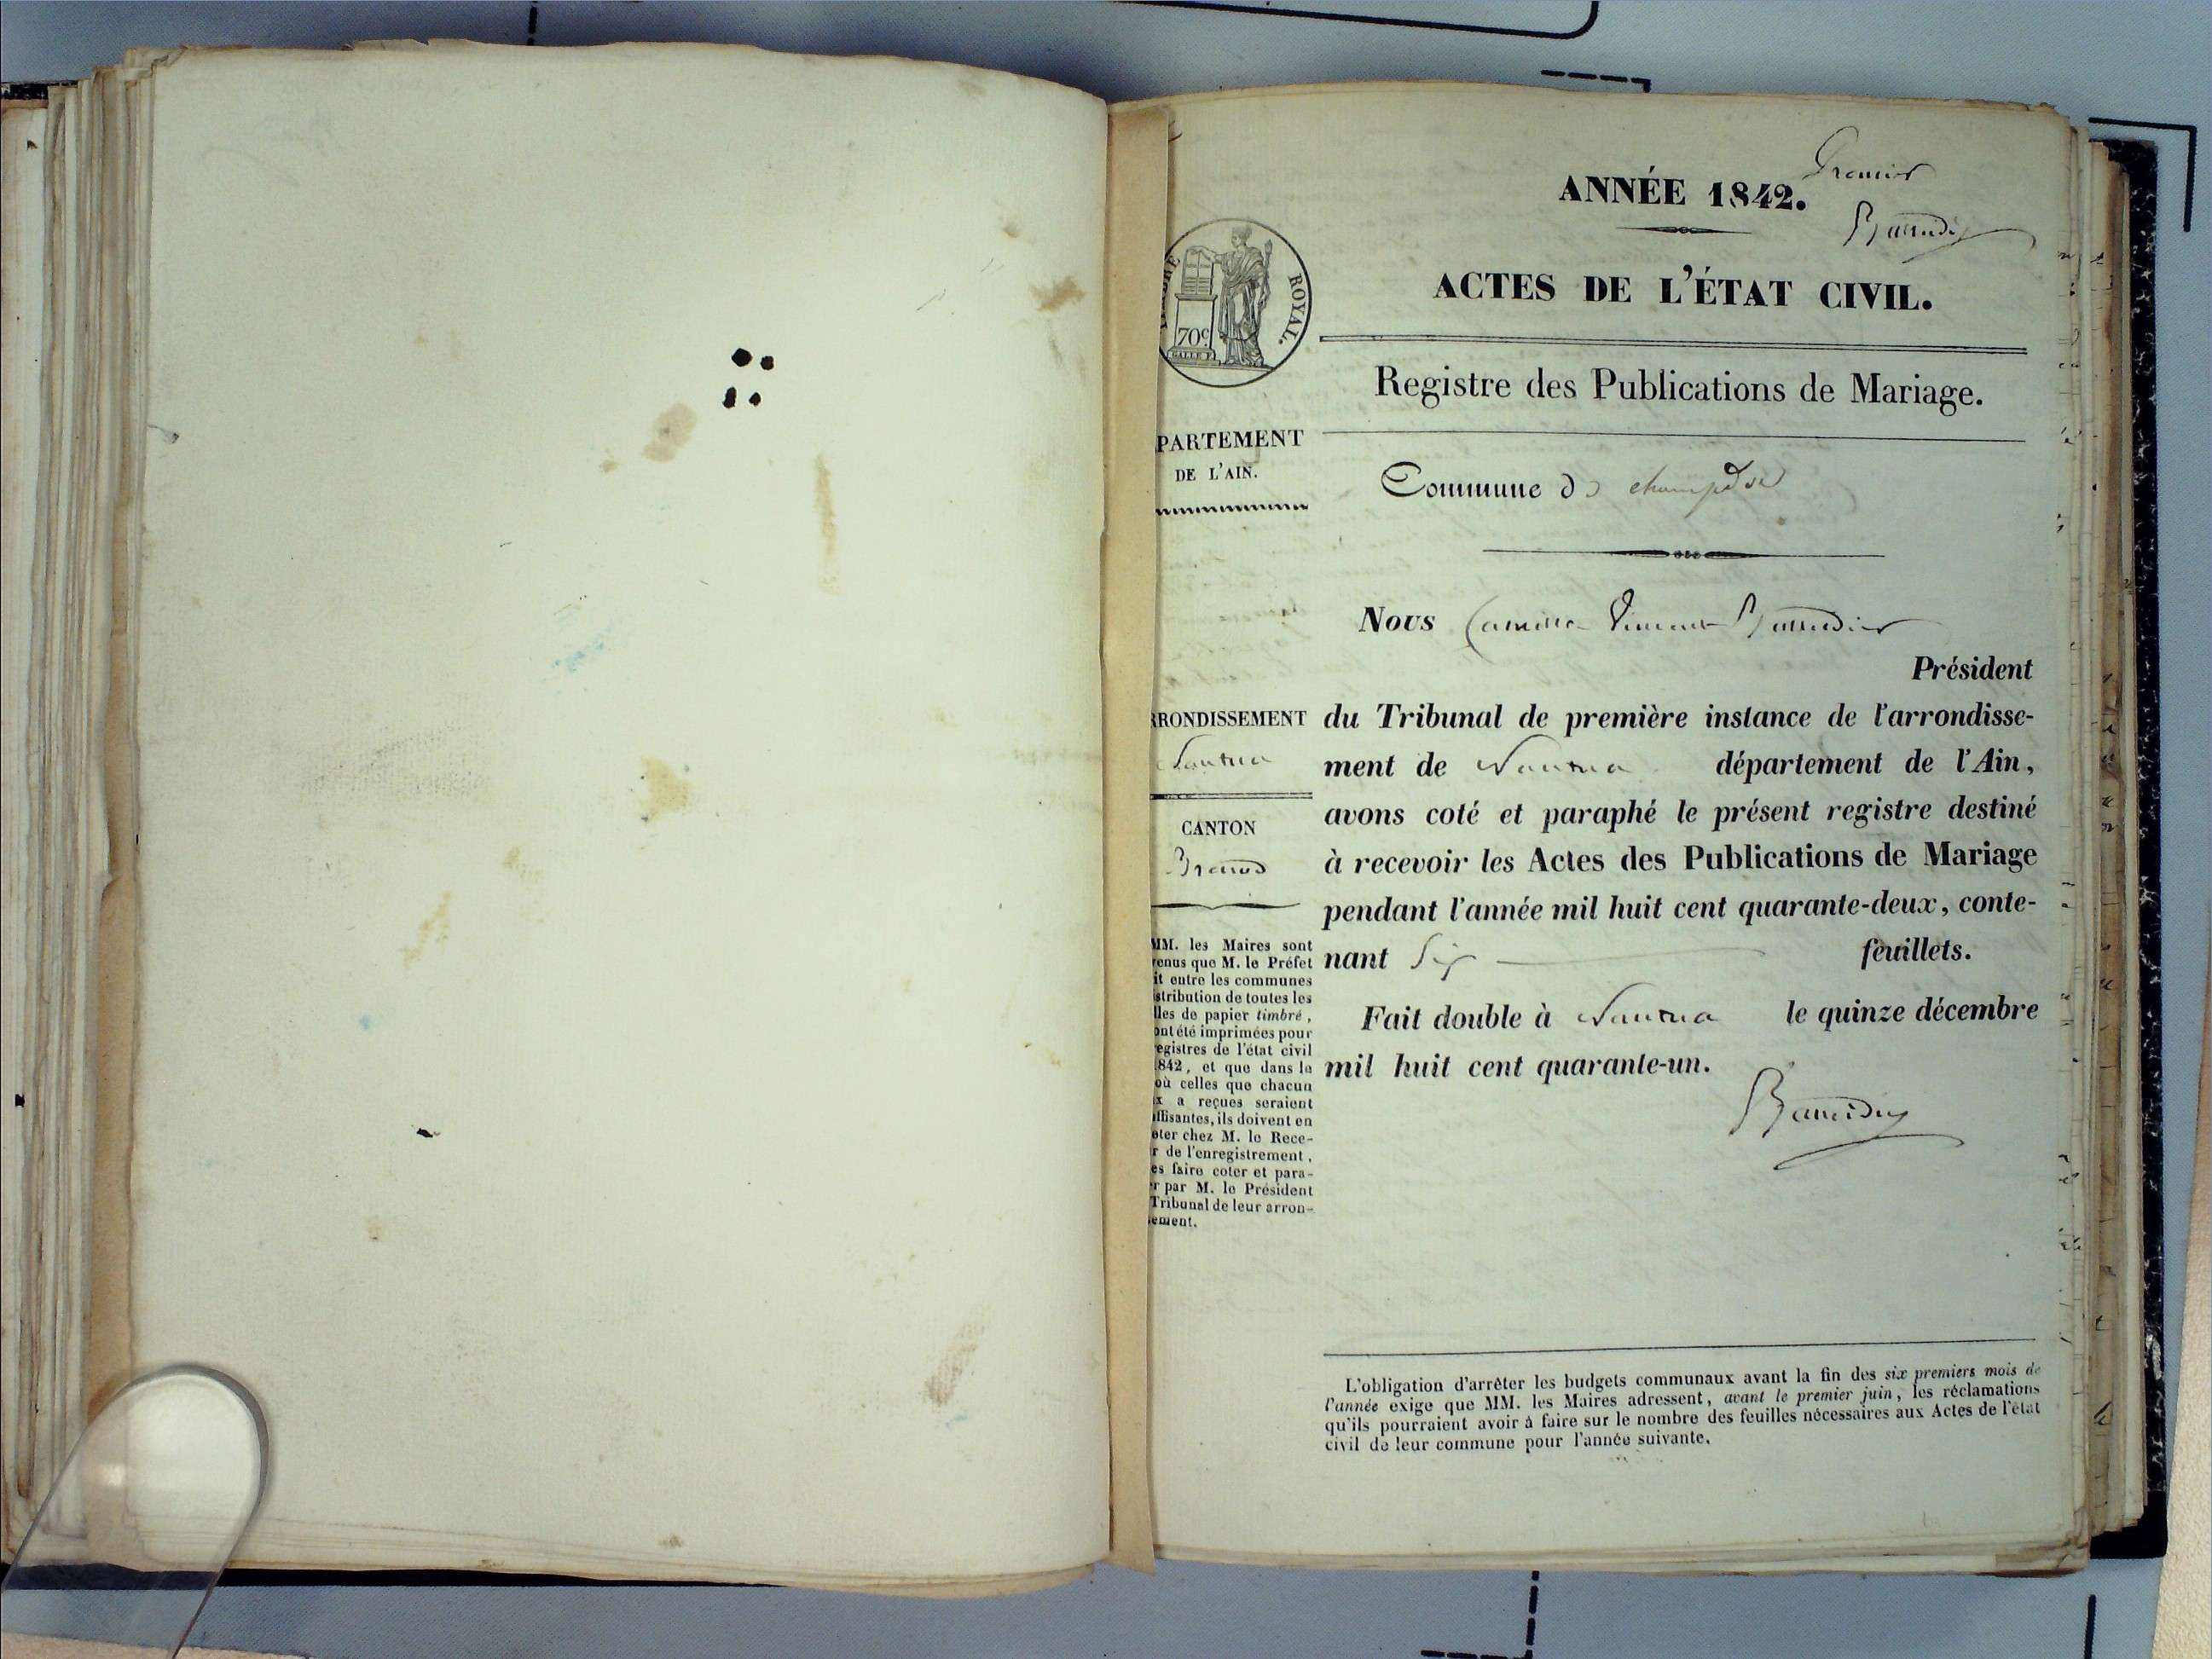 Premier
ANNÉE 1842.
ACTES DE L'ÉTAT CIVIL.
ROYAL.
70c
GALLE F.
Registre des Publications de Mariage.
PARTEMENT
DE L'AIN.
Commune de champdor
Nous Camille Vincent
Président
RRONDISSEMENT
Nantua
CANTON
Brenod
MM. les Maires sont
venus que M. le Préfet
it entre les communes
stribution de toutes les
lles de papier timbré,
ont été imprimées pour
egistres de l'état civil
842, et que dans le
où celles que chacun
x a reçues seraient
ffisantes, ils doivent en
eter chez M. le Rece-
r de l'enregistrement,
es faire coter et para-
r par M. le Président
Tribunal de leur arron-
ement.
du Tribunal de première instance de l'arrondisse-
ment de Nantua département de l'Ain,
avons coté et paraphé le présent registre destiné
à recevoir les Actes des Publications de Mariage
pendant l'année mil huit cent quarante-deux, conte-
nant Six feuillets.
Fait double à Nantua le quinze décembre
mil huit cent quarante-un.
L'obligation d'arrêter les budgets communaux avant la fin des six premiers mois de
l'année exige que MM. les Maires adressent, avant le premier juin, les réclamations
qu'ils pourraient avoir à faire sur le nombre des feuilles nécessaires aux Actes de l'état
civil de leur commune pour l'année suivante.